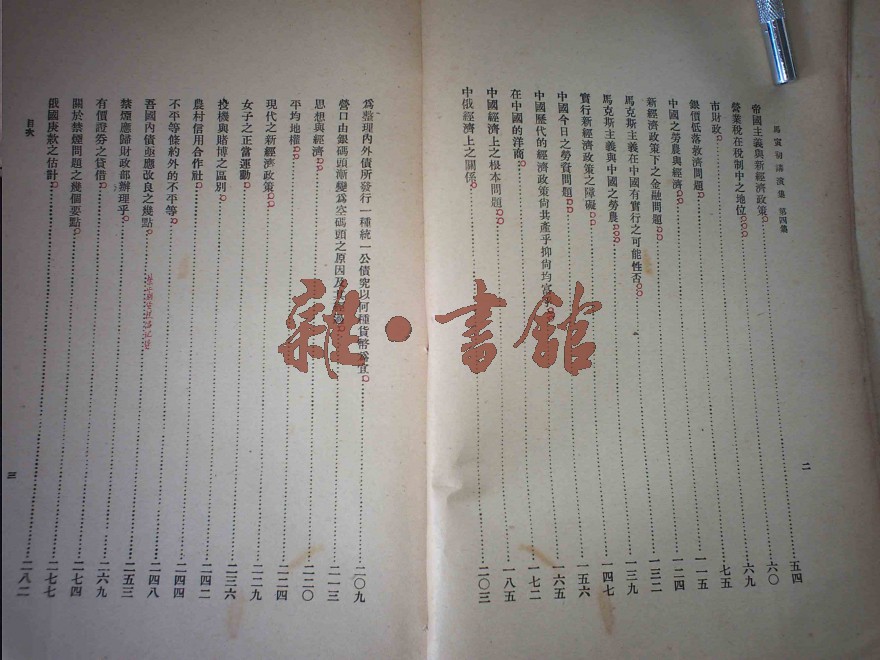 馬寅初講演集 第四集
二
帝國主義與新經濟政策 五四
營業稅在稅制中之地位 六〇
市財政 六九
銀價低落救濟問題 七五
中國之勞農與經濟 一一五
新經濟政策下之金融問題 一二四
馬克斯主義在中國有實行之可能性否 一三二
馬克斯主義與中國之勞農 一三九
實行新經濟政策之障礙 一四七
中國今日之勞資問題 一五六
中國歷代的經濟政策尙共產乎抑尙均富 一六五
在中國的洋商 一七二
中國經濟上之根本問題 一八五
中俄經濟上之關係 二〇三
爲整理內外債所發行一種統一公債究以何種貨幣爲宜 二〇九
營口由銀碼頭漸變爲空碼頭之原因及 二一三
思想與經濟 二二〇
平均地權 二二四
現代之新經濟政策 二二九
女子之正當運動 二三六
投機與賭博之區別 二四二
農村信用合作社 二四四
不平等條約外的不平等 二四八
吾國內債亟應改良之幾點 二五三
禁煙應歸財政部辦理乎 二六九
有價證券之貸借 二七四
關於禁煙問題之幾個要點 二七七
俄國庚款之估計 二八二
目次
三
雜·書館